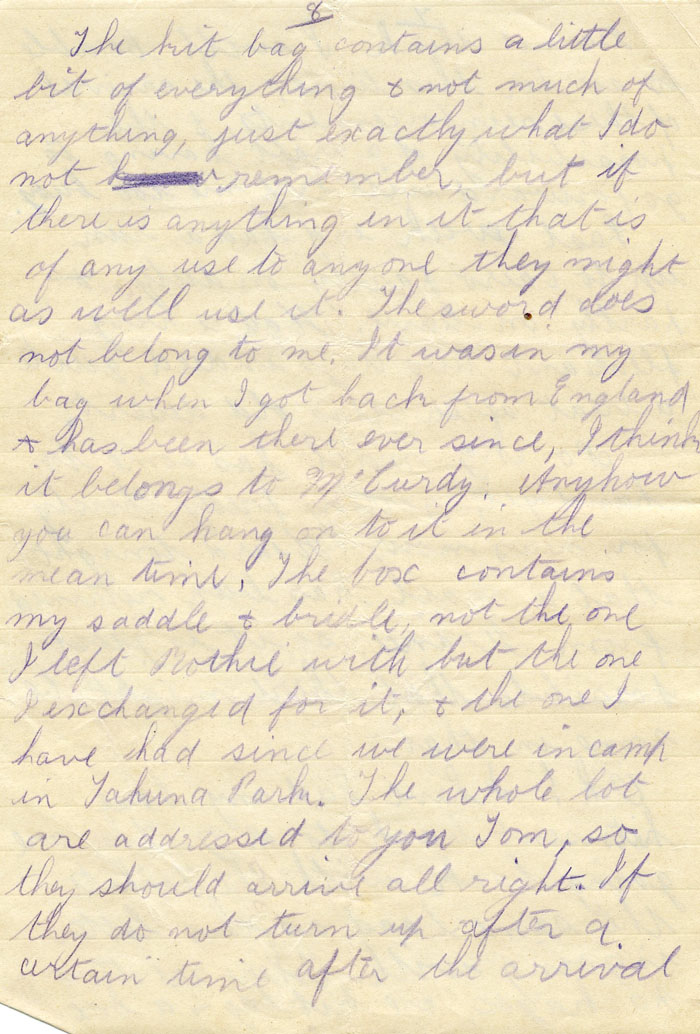 8
The kit bag contains a little
bit of everything & not much of
anything, just exactly what I do
not remember, but if
there is anything in it that is
of any use to anyone they might
as well use it. The sword does
not belong to me. It was in my
bag when I got back from England
& has been there ever since, I think
it belongs to McCurdy. Anyhow
you can hang on to it in the
mean time. The box contains
my saddle & bridle, not the one
I left Rothie with but the one
I exchanged for it, & the one I
have had since we were in camp
in Tahuna Park. The whole lot
are addressed to you Tom, so
they should arrive all right. If
they do not turn up after a
certain time after the arrival